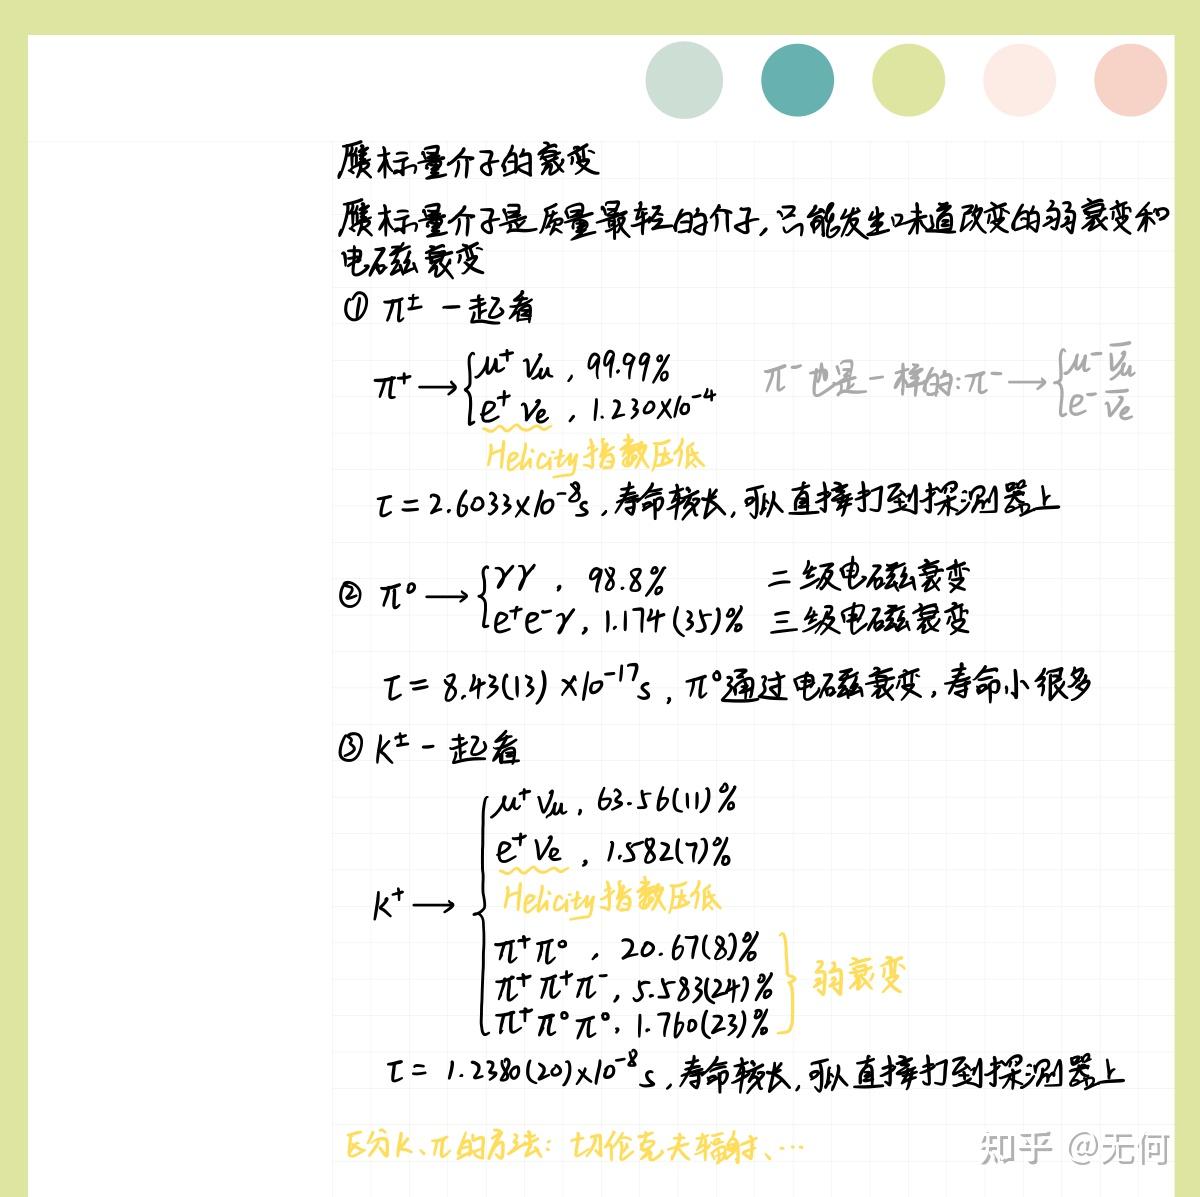 赝标量介子的衰变
赝标量介子是质量最轻的介子,只能发生味道改变的弱衰变和
电磁衰变
① π± 一起看
π⁺ → { μ⁺ νμ , 99.99%
e⁺ νe , 1.230×10⁻⁴
π⁻也是一样的: π⁻ → { μ⁻ ν̄μ
e⁻ ν̄e
Helicity指数压低
τ = 2.6033×10⁻⁸s ,寿命较长,可以直接打到探测器上
② π⁰ → { γγ , 98.8% 二级电磁衰变
e⁺e⁻γ, 1.174(35)% 三级电磁衰变
τ = 8.43(13) ×10⁻¹⁷s , π⁰通过电磁衰变,寿命小很多
③ K± 一起看
K⁺ → { μ⁺ νμ , 63.56(11)%
e⁺ νe , 1.582(7)%
Helicity指数压低
π⁺π⁰ , 20.67(8)%
π⁺π⁺π⁻, 5.583(24)%
π⁺π⁰π⁰, 1.760(23)%
} 弱衰变
τ = 1.2380(20)×10⁻⁸s ,寿命较长,可以直接打到探测器上
区分K、π的方法: 切伦克夫辐射、…
知乎 @无何